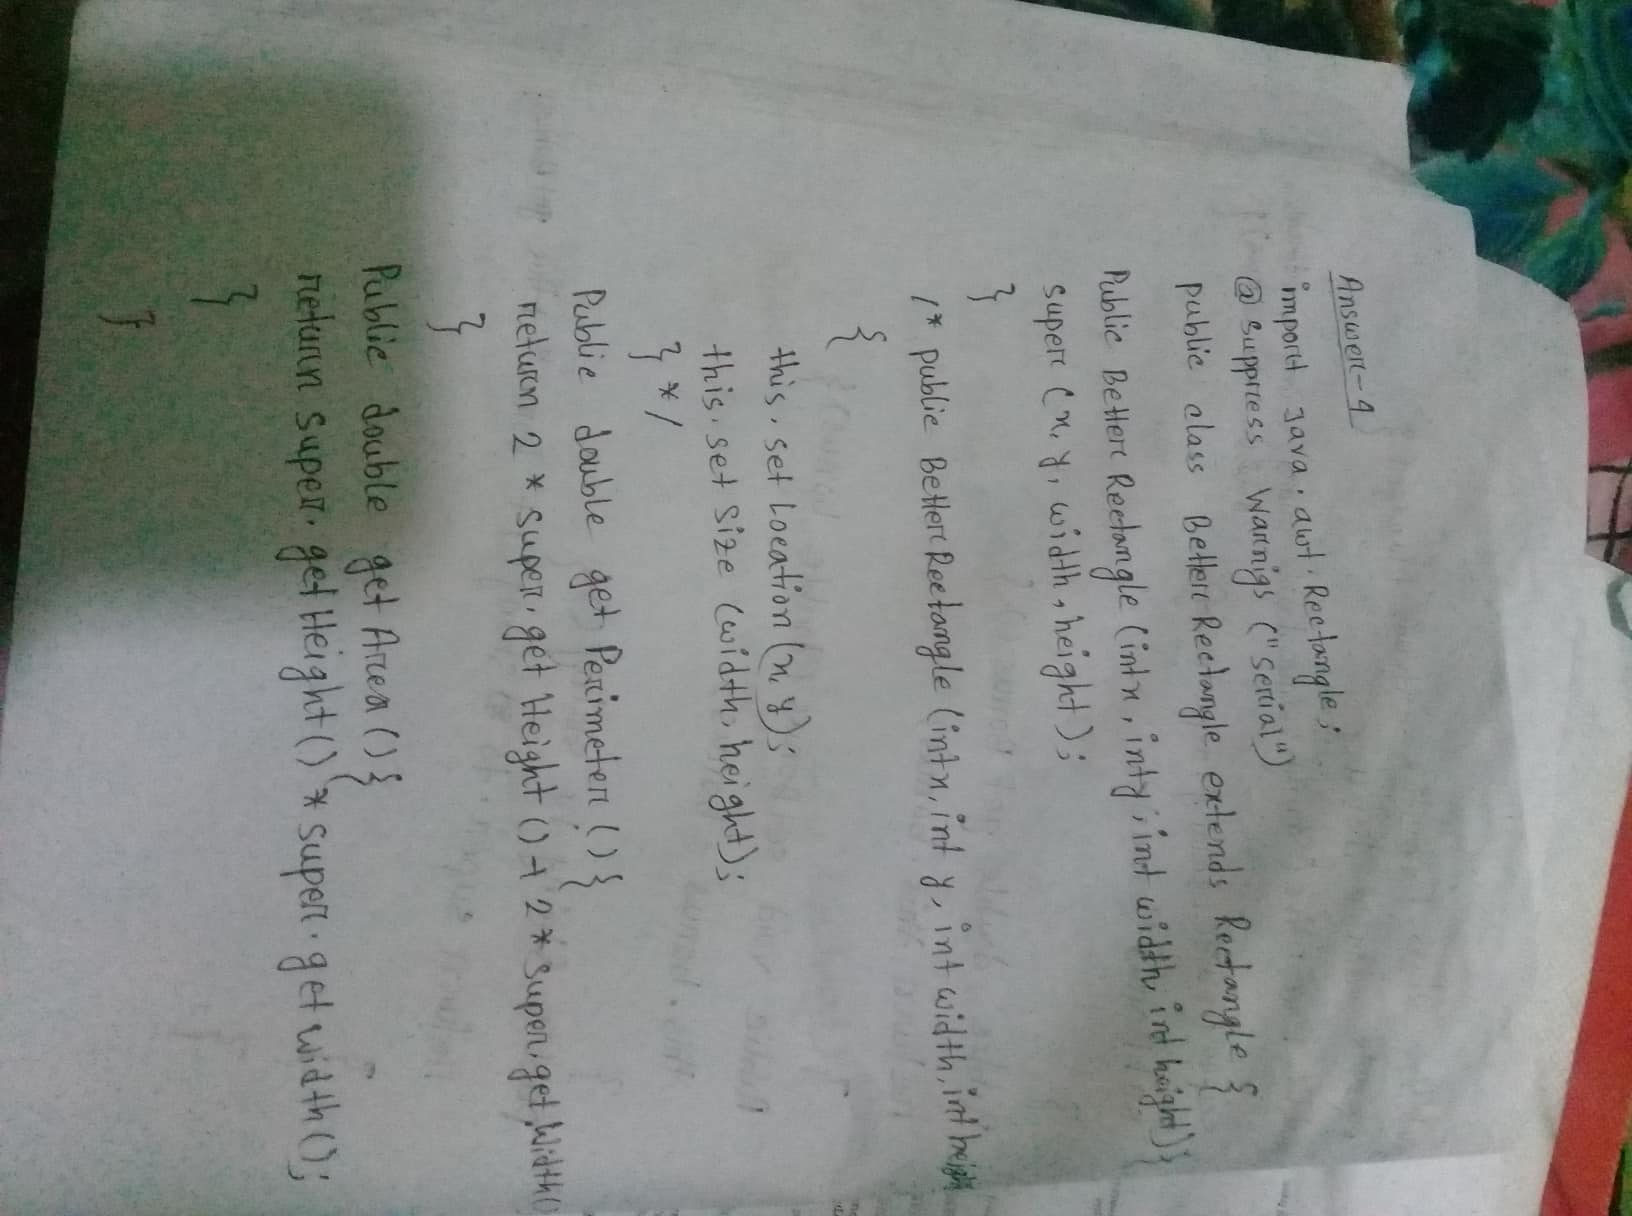 Answer-4
import java.awt.Rectangle;
@ Suppress Warnigs ("serial")
public class Better Rectangle extends Rectangle {
Public Better Rectangle (int x, int y, int width, int height) {
super (x, y, width, height);
}
/* public Better Rectangle (int x, int y, int width, int heigh
{
this. set Location (x, y);
this. set Size (width, height);
} */
Public double get Perimeter () {
return 2 * super. get Height () + 2 * super. get Width ()
}
Public double get Area () {
return super. get Height () * super. get width ();
}
}